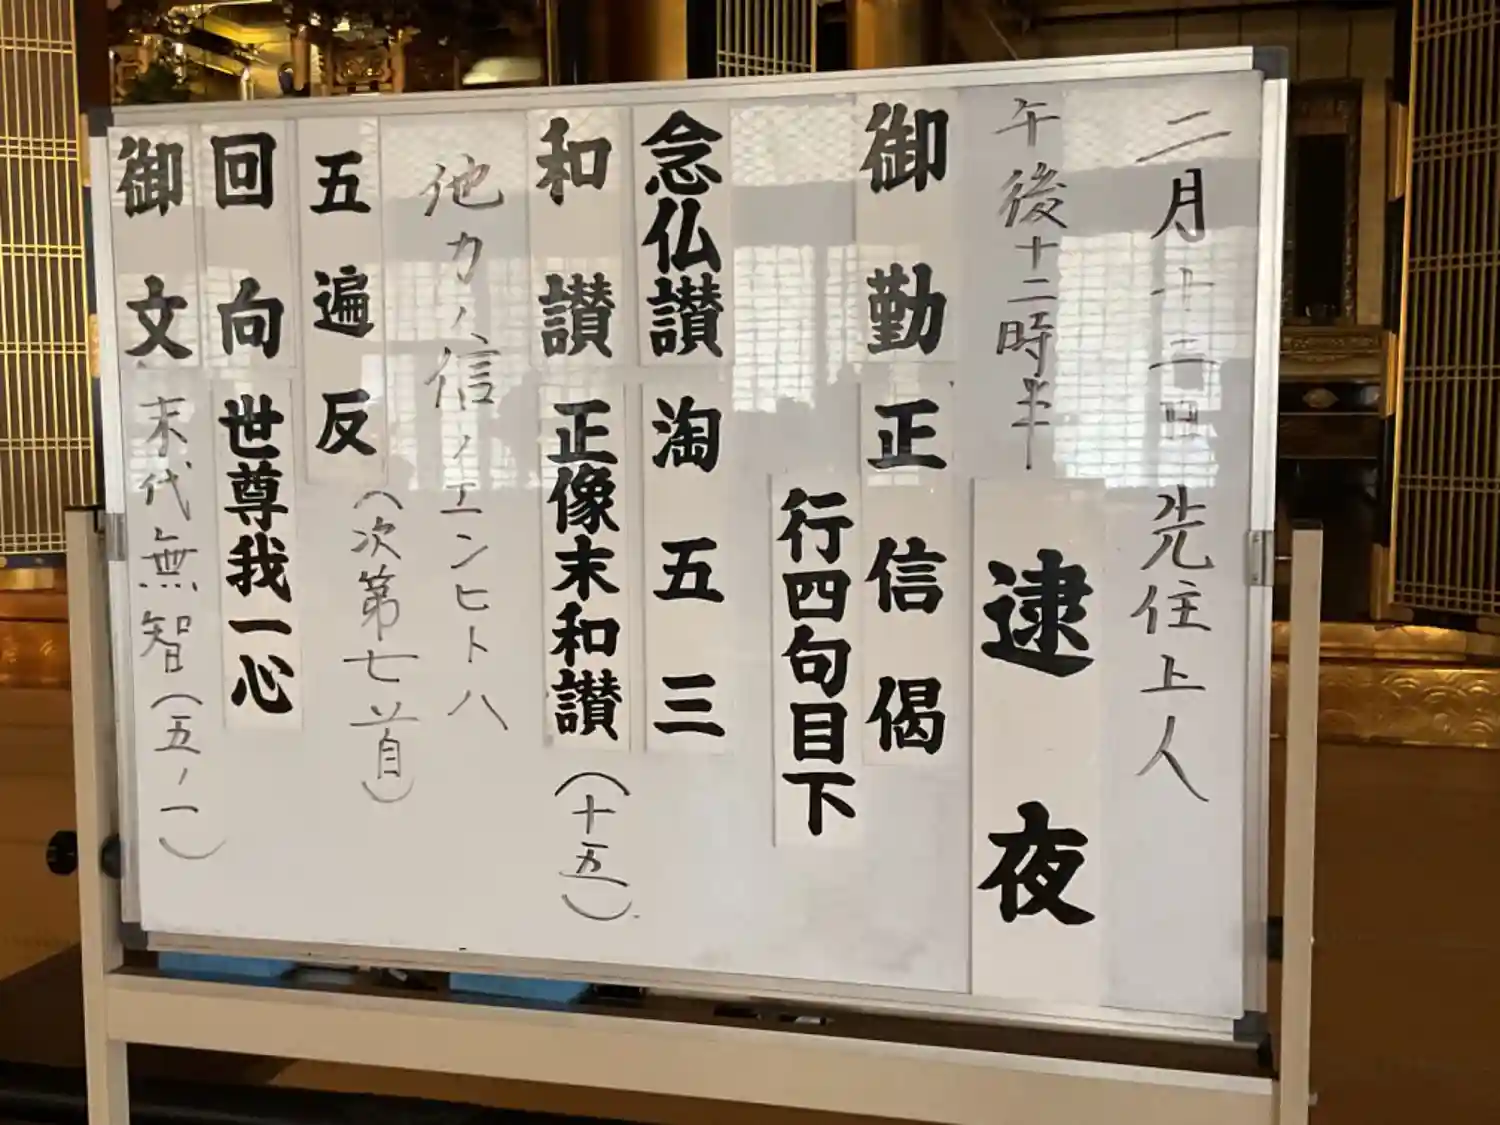 二月十二日 先住上人
午後十二時半 逮夜
御勤 正信偈
行四句目下
念仏讃 淘五三
和讃 正像末和讃(十五)
他力ノ信ノエンヒトハ
五遍反(次第七首)
回向 世尊我一心
御文 末代無智(五ノ一)